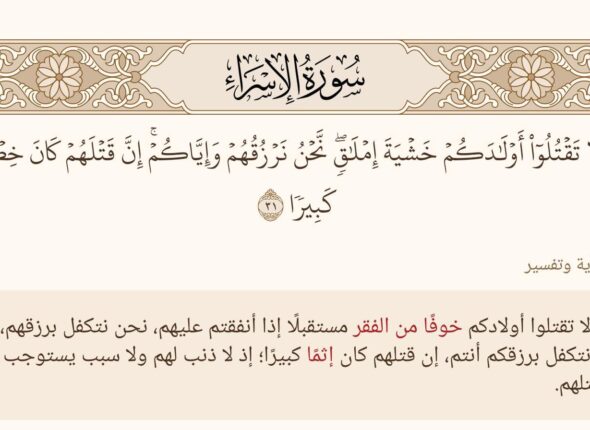 سُورَةُ الإِسْرَاءِ
تَقۡتُلُوٓاْ أَوۡلَٰدَكُمۡ خَشۡيَةَ إِمۡلَٰقٖۖ نَّحۡنُ نَرۡزُقُهُمۡ وَإِيَّاكُمۡۚ إِنَّ قَتۡلَهُمۡ كَانَ
كَبِيرٗا ٣١
وتفسير
لا تقتلوا أولادكم خوفًا من الفقر مستقبلًا إذا أنفقتم عليهم، نحن نتكفل برزقهم،
نتكفل برزقكم أنتم، إن قتلهم كان إثمًا كبيرًا؛ إذ لا ذنب لهم ولا سبب يستوجب